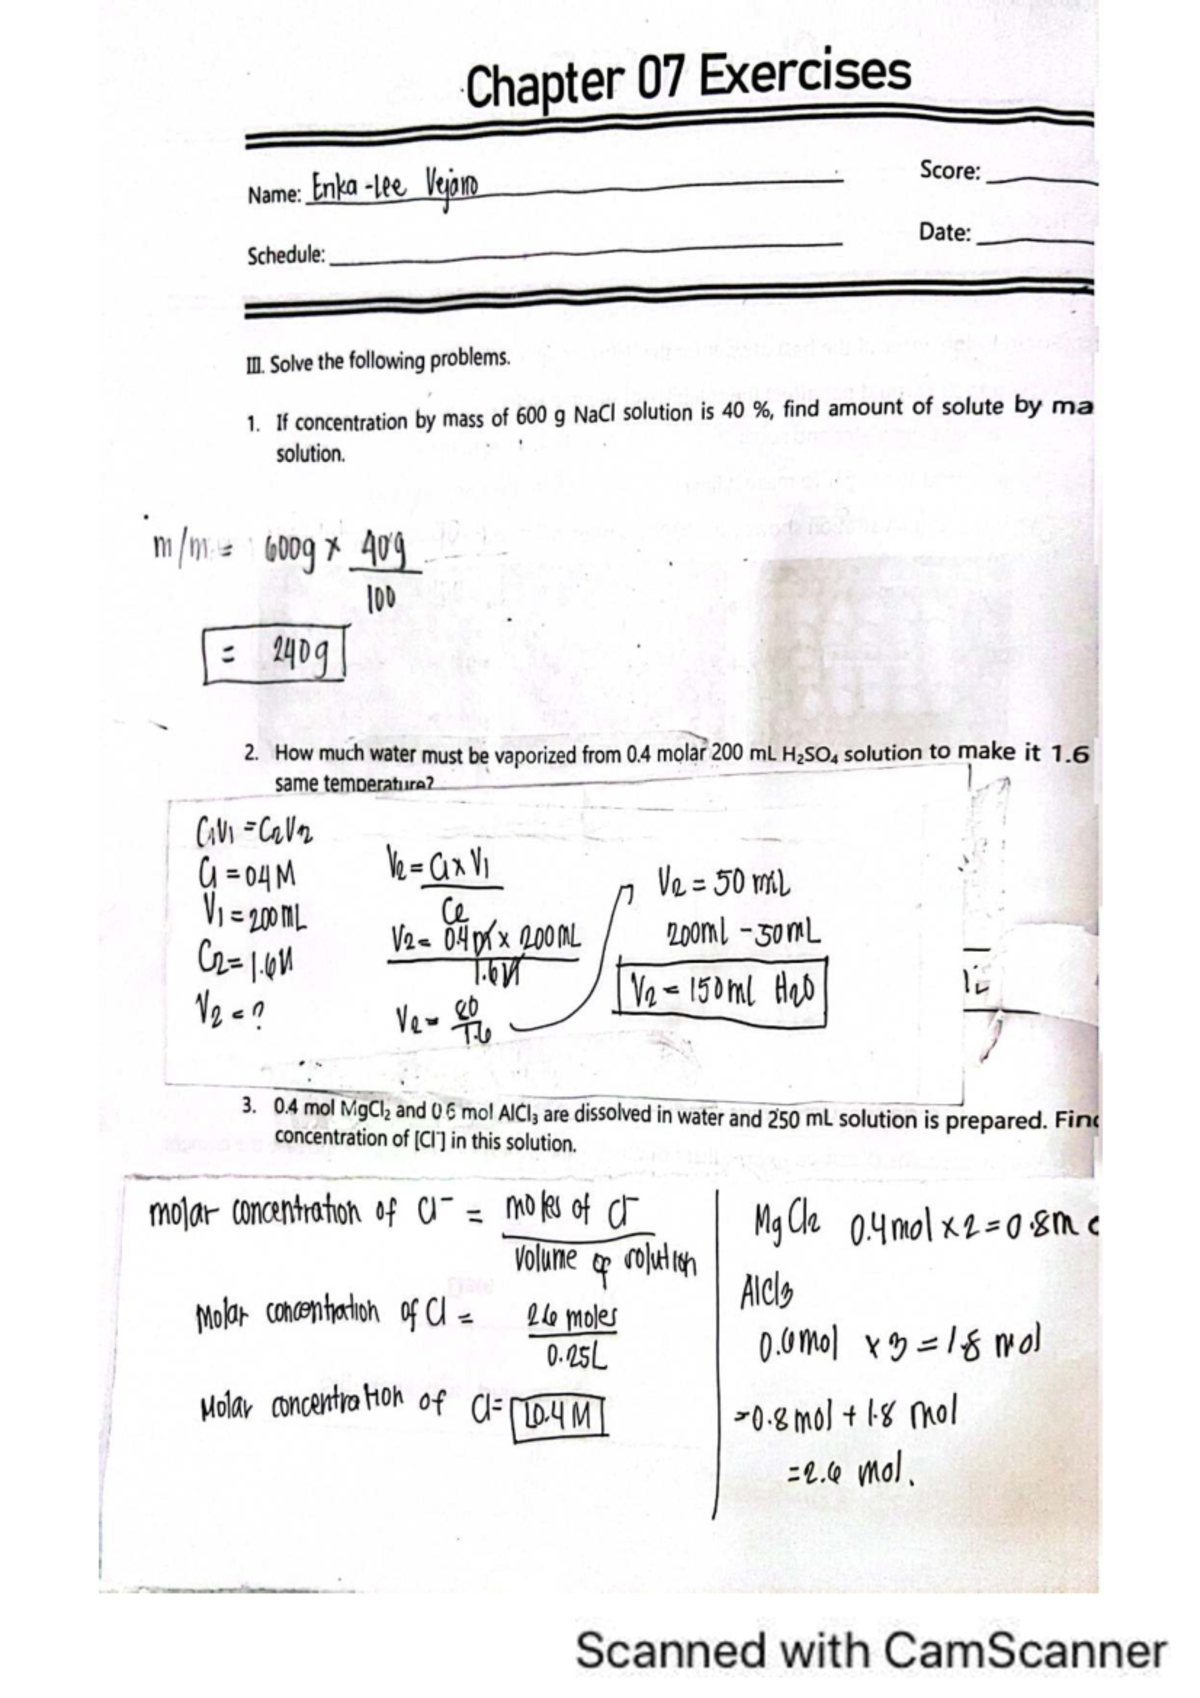 Chapter 07 Exercises
Name: Enka-Lee Vejano
Score:
Schedule:
Date:
III. Solve the following problems.
1. If concentration by mass of 600 g NaCl solution is 40 %, find amount of solute by ma
solution.
m/m = 600g x 40g
100
= 240g
2. How much water must be vaporized from 0.4 molar 200 mL H₂SO₄ solution to make it 1.6
same temperature?
C₁V₁ = C₂V₂
C₁ = 04M
V₁ = 200mL
C₂ = 1.6M
V₂ = ?
V₂ = C₁ x V₁
C₂
V₂ = 0.4M x 200mL
1.6M
V₂ = 80
1.6
V₂ = 50 mL
200ml - 50mL
V₂ = 150ml H₂O
3. 0.4 mol MgCl₂ and 0.6 mol AlCl₃ are dissolved in water and 250 mL solution is prepared. Find
concentration of [Cl⁻] in this solution.
molar concentration of Cl⁻ = moles of Cl⁻
volume of solution
Molar concentration of Cl = 2.6 moles
0.25L
Molar concentration of Cl = 10.4 M
MgCl₂ 0.4mol x 2 = 0.8m
AlCl₃
0.6mol x 3 = 1.8 mol
= 0.8 mol + 1.8 mol
= 2.6 mol.
Scanned with CamScanner